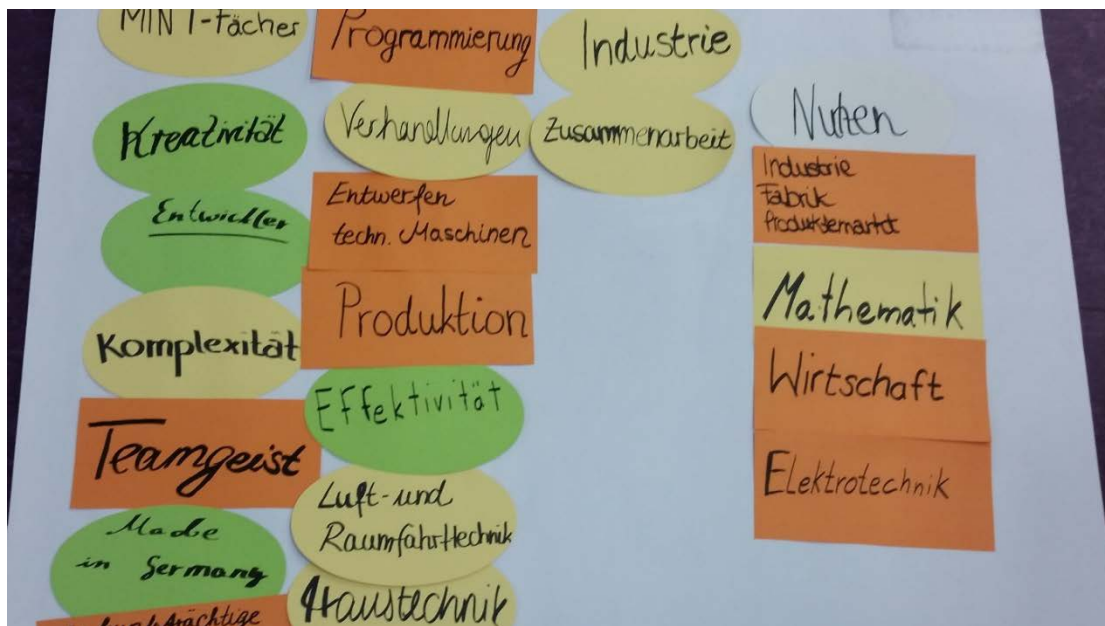 MINT-Fächer
Kreativität
Entwickler
Komplexität
Teamgeist
Made
in Germany
Programmierung
Verhandlungen
Entwerfen
techn. Maschinen
Produktion
Effektivität
Luft- und
Raumfahrttechnik
Haustechnik
Industrie
Zusammenarbeit
Nutzen
Industrie
Fabrik
Mathematik
Wirtschaft
Elektrotechnik